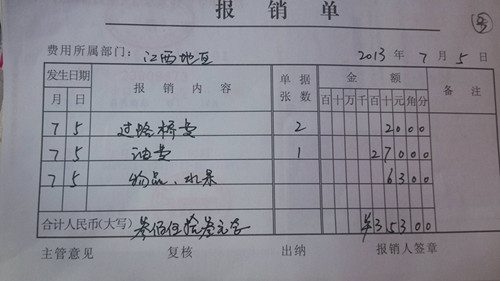 报销单
费用所属部门：江西地区 2013年7月5日
发生日期 报销内容 单据张数 金额 备注
月 日 百十万千百十元角分
7 5 过路桥费 2 2000
7 5 油费 1 27000
7 5 物品、水果 6300
合计人民币(大写) 叁佰伍拾叁元整 ¥35300
主管意见 复核 出纳 报销人签章